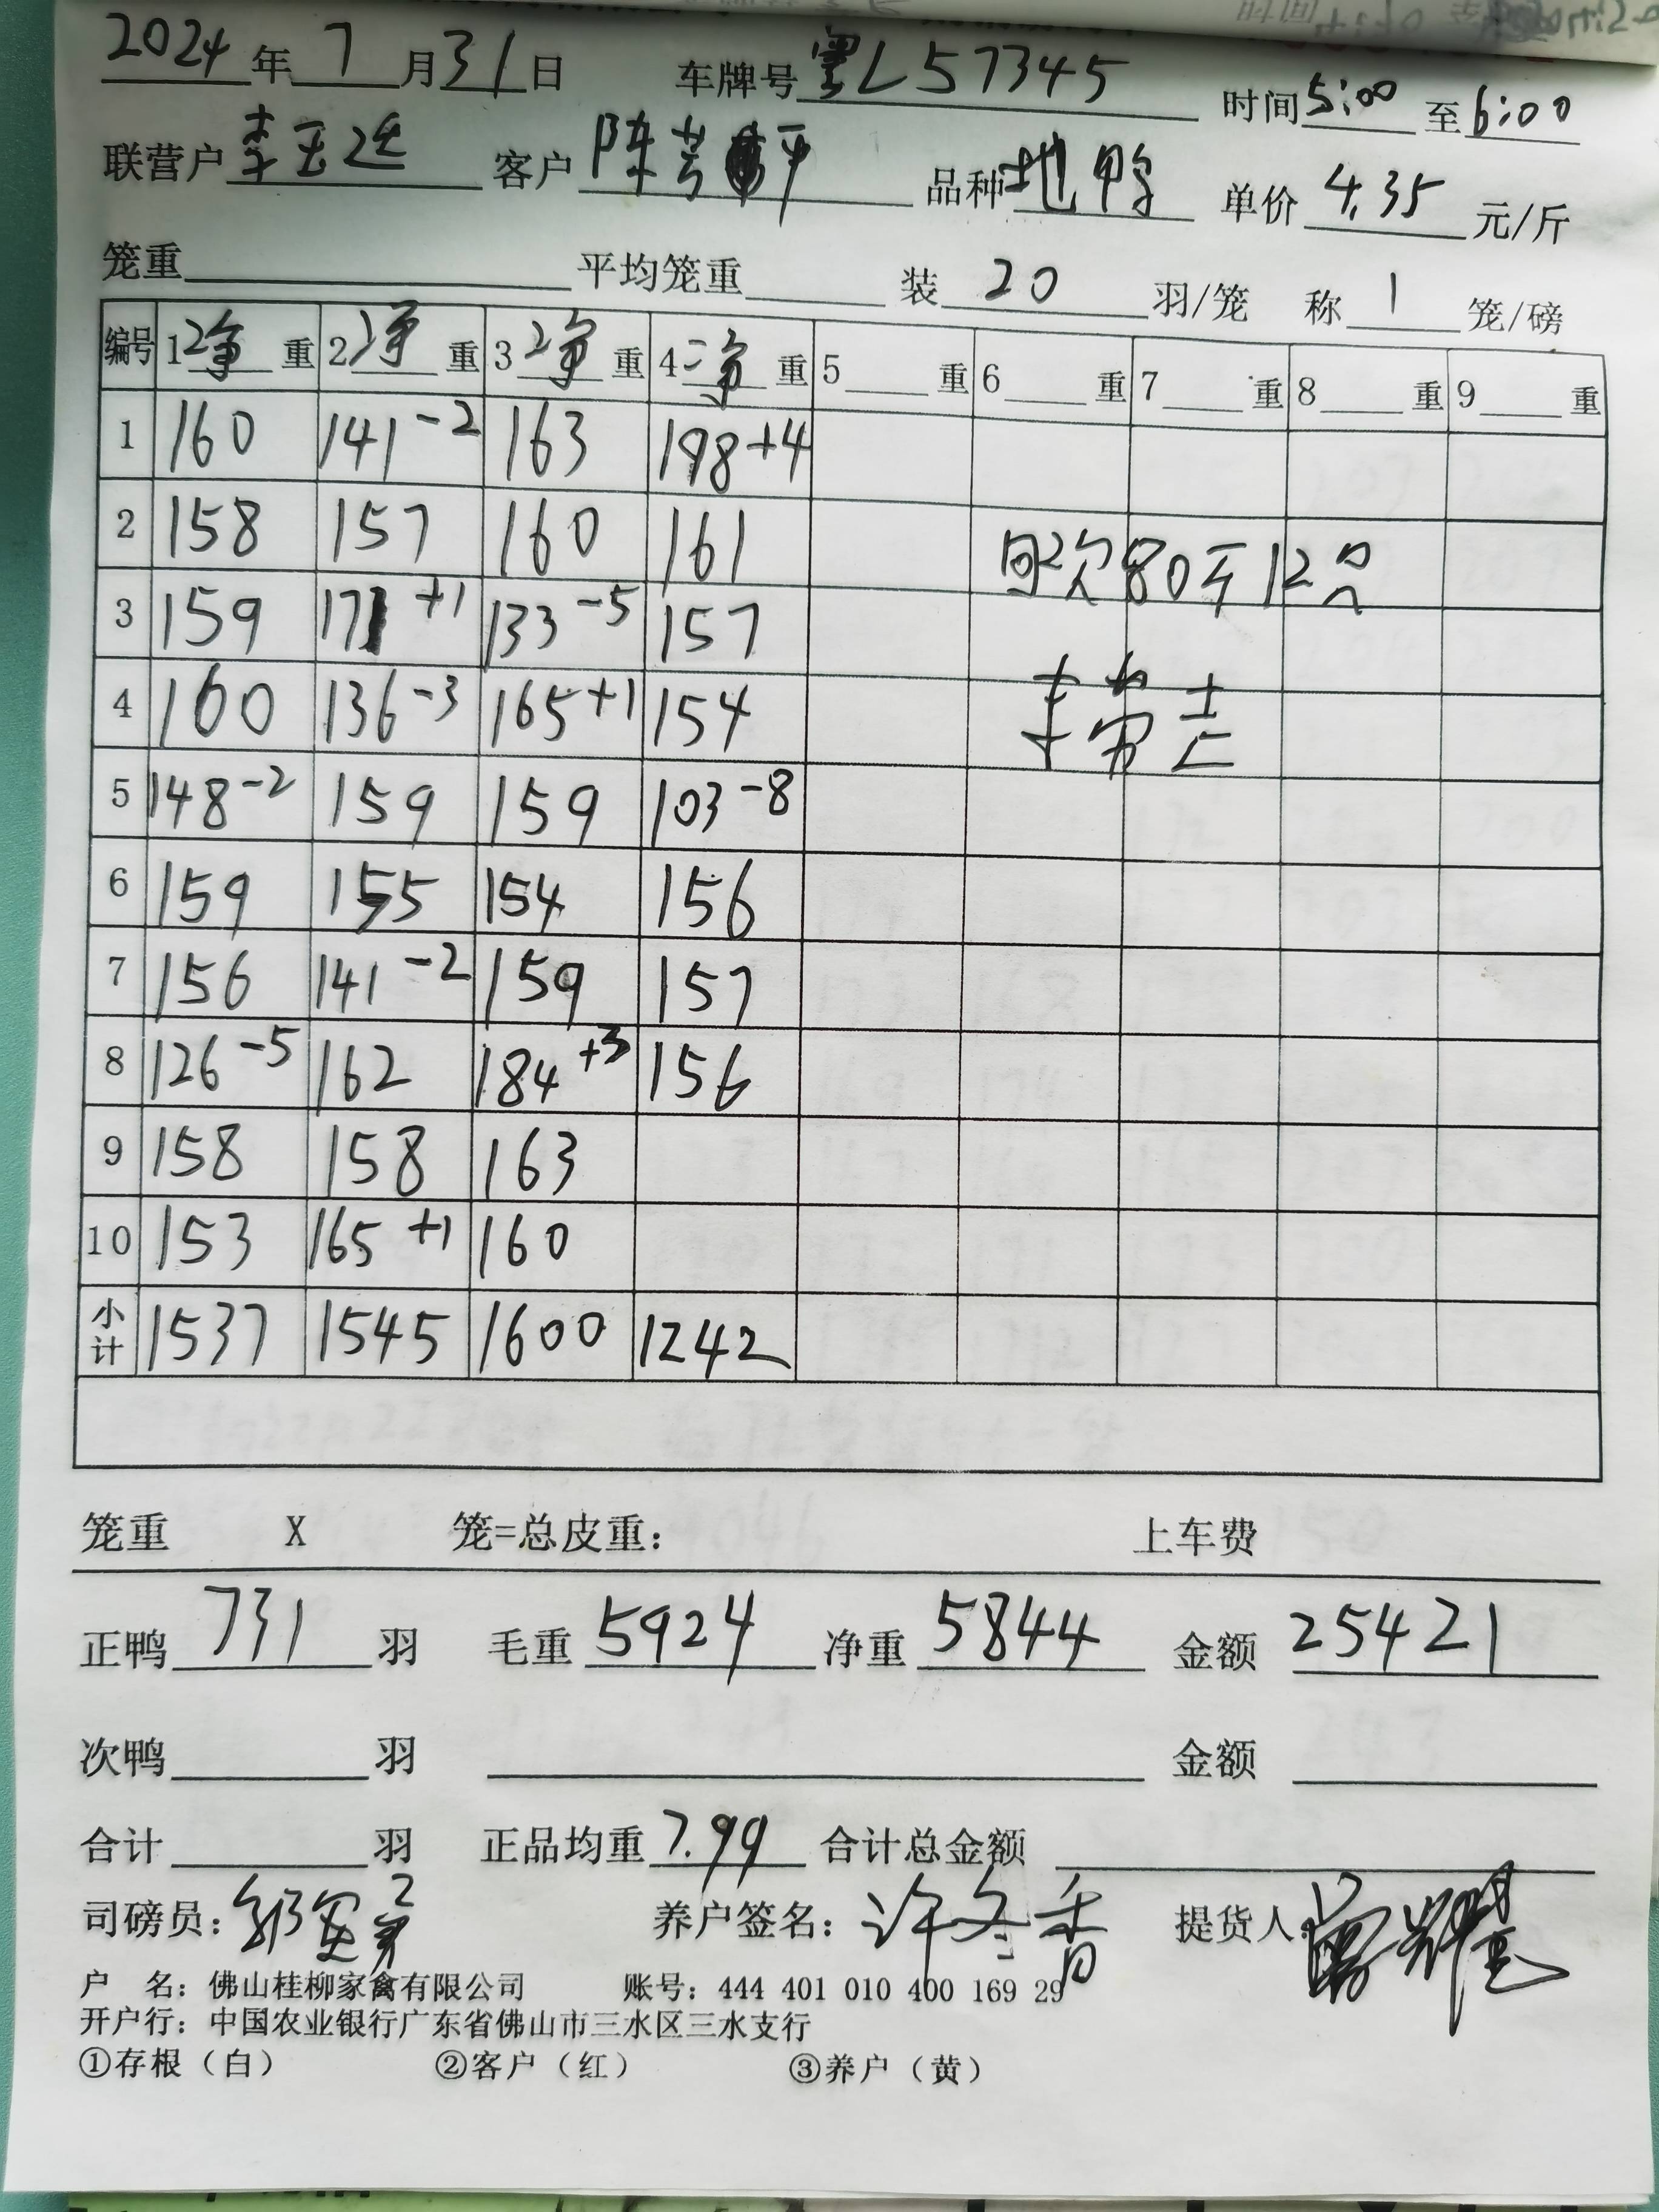 2024年7月31日 车牌号粤L57345 时间5:00至6:00
联营户李玉连 客户陈芳平 品种地鸭 单价4.35元/斤
笼重 平均笼重 装20羽/笼 称1笼/磅
编号 1净重 2净重 3净重 4净重 5重 6重 7重 8重 9重
1 160 141-2 163 198+4
2 158 157 160 161
回次80斤12只
3 159 171+1 133-5 157
4 160 136-3 165+1 154
5 148-2 159 159 103-8
6 159 155 154 156
7 156 141-2 159 157
8 126-5 162 184+3 156
9 158 158 163
10 153 165+1 160
小计 1537 1545 1600 1242
笼重 X 笼=总皮重: 上车费
正鸭731羽 毛重5924 净重5844 金额25421
次鸭 羽 金额
合计 羽 正品均重7.99 合计总金额
司磅员: 养户签名:许冬香 提货人:
户 名:佛山桂柳家禽有限公司 账号:444 401 010 400 169 29
开户行:中国农业银行广东省佛山市三水区三水支行
①存根(白) ②客户(红) ③养户(黄)